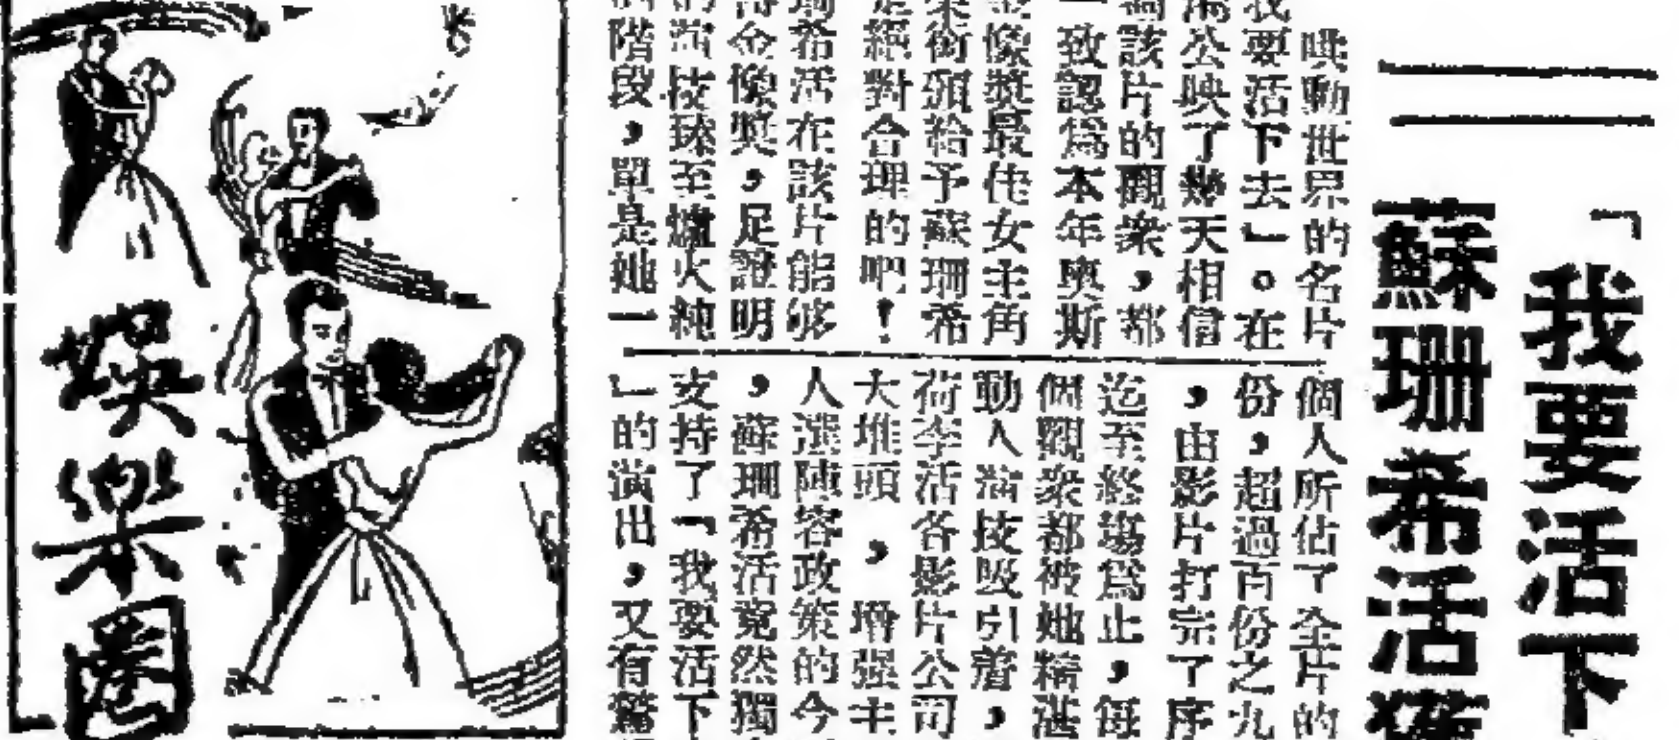 「我要活下
蘇珊希活獲
哄動世界的名片
我要活下去」。在
公映了幾天相信
過該片的觀衆,都
一致認爲本年奧斯
金像獎最佳女主角
榮銜頒給予蘇珊希
是絕對合理的吧!
珊希活在該片能够
得金像獎,足證明
的演技臻至爐火純
的階段,單是她一
個人所佔了全片的
份,超過百份之九
,由影片打完了序
迄至終場爲止,每
個觀衆都被她精湛
動人演技吸引着,
荷李活各影片公司
大堆頭,增强主
人選陣容政策的今
,蘇珊希活竟然獨
支持了「我要活下
」的演出,又有驚
娛樂圈